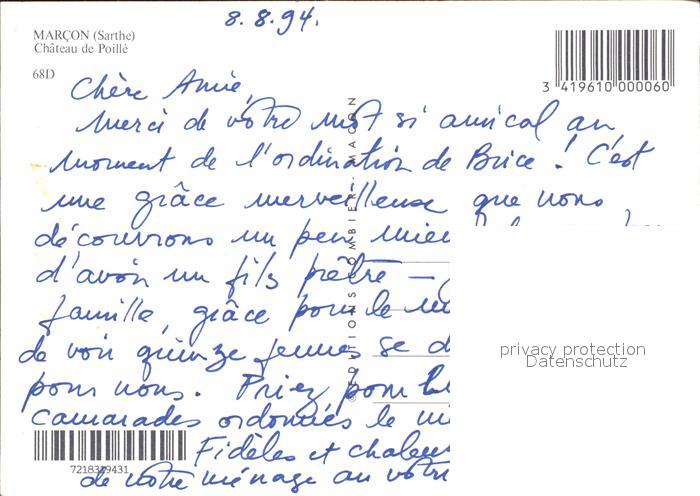 8.8.94.
MARÇON (Sarthe)
Château de Poillé
68D
3 419610 000060
Chère Amie,
Merci de votre mot si amical au
moment de l'ordination de Brice ! C'est
une grâce merveilleuse que nous
découvrons un peu mieu
d'avoir un fils prêtre —
famille, grâce pour le
de voir quinze jeunes se d
pour nous. Priez pour
camarades ordonnés le
Fidèles et chaleu
de votre ménage au votre
© EDITIONS COMBIER - MACON
7218339431
privacy protection
Datenschutz